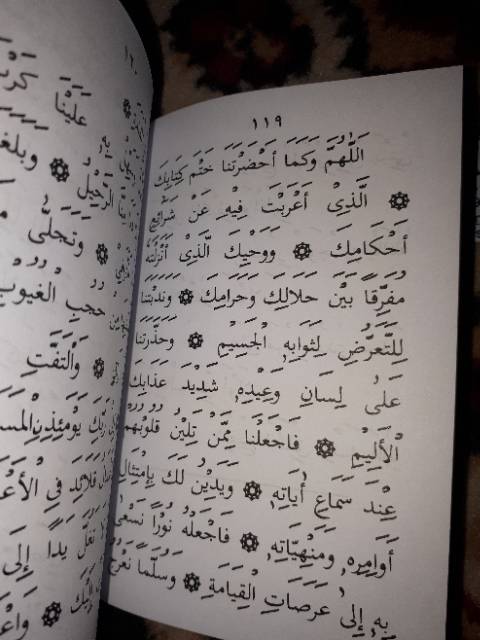 ١١٩
اَللّٰهُمَّ وَكَمَا اَحْضَرْتَنَا خَتْمَ كِتَابِكَ
۞ الَّذِىْ اَعْرَبْتَ فِيْهِ عَنْ شَرَائِعِ
اَحْكَامِكَ ۞ وَوَحْيِكَ الَّذِىْ اَنْزَلْتَهُ
مُفَرِّقًا بَيْنَ حَلَالِكَ وَحَرَامِكَ ۞ وَنَدَبْتَنَا
لِلتَّعَرُّضِ لِثَوَابِهِ الْجَسِيْمِ ۞ وَحَذَّرْتَنَا
عَلٰى لِسَانِ وَعِيْدِهِ شَدِيْدَ عَذَابِكَ
الْأَلِيْمِ ۞ فَاجْعَلْنَا مِمَّنْ تَلِيْنُ قُلُوْبُهُمْ
عِنْدَ سَمَاعِ أٰيَاتِهِ ۞ وَيَدِيْنُ لَكَ بِاِمْتِثَالِ
اَوَامِرِهِ وَمَنْهِيَّاتِهِ ۞ فَاجْعَلْهُ نُوْرًا نَسْعٰى
بِهِ اِلٰى عَرَصَاتِ الْقِيَامَةِ ۞ وَسُلَّمًا نَعْرُجُ
١٢٠
عَلَيْنَا
الرَّحِيْلُ ۞
۞ وَتَجَلّٰى
حُجُبِ الْغُيُوْبِ
۞ وَالْتَفَّتِ
رَبِّكَ يَوْمَئِذِنِ
قَلَائِدَ فِى
يَدًا اِلٰى